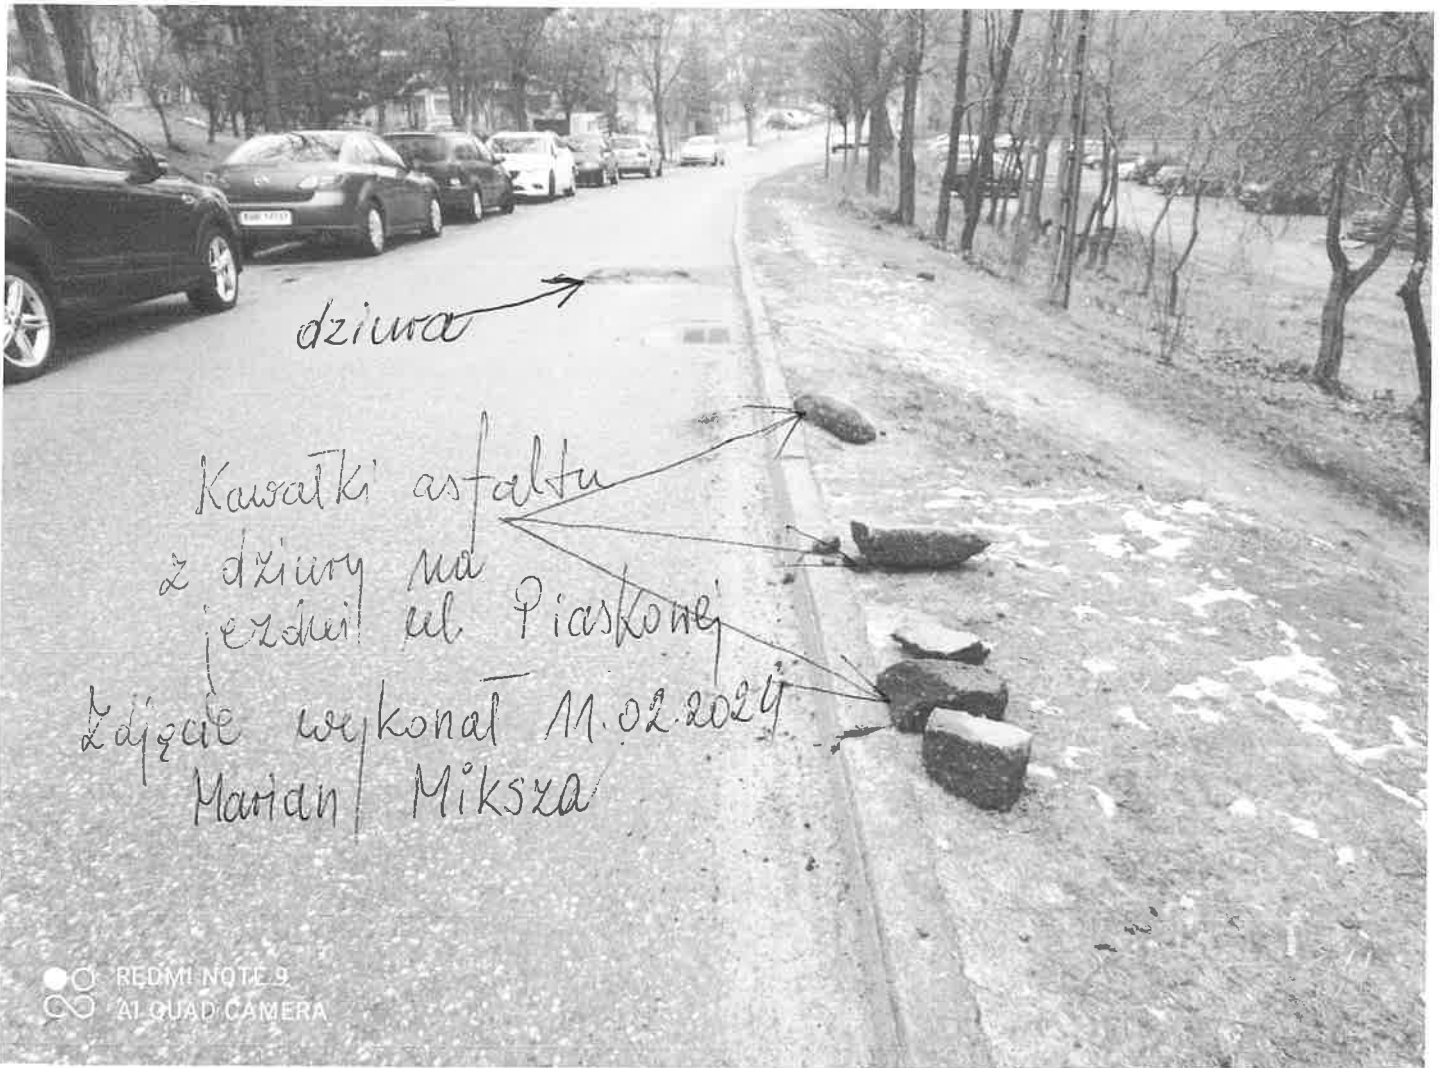 dziura
Kawałki asfaltu
z dziury na
jezdni ul. Piaskowej
Zdjęcie wykonał 11.02.2024
Marian Miksza
REDMI NOTE 9
AI QUAD CAMERA